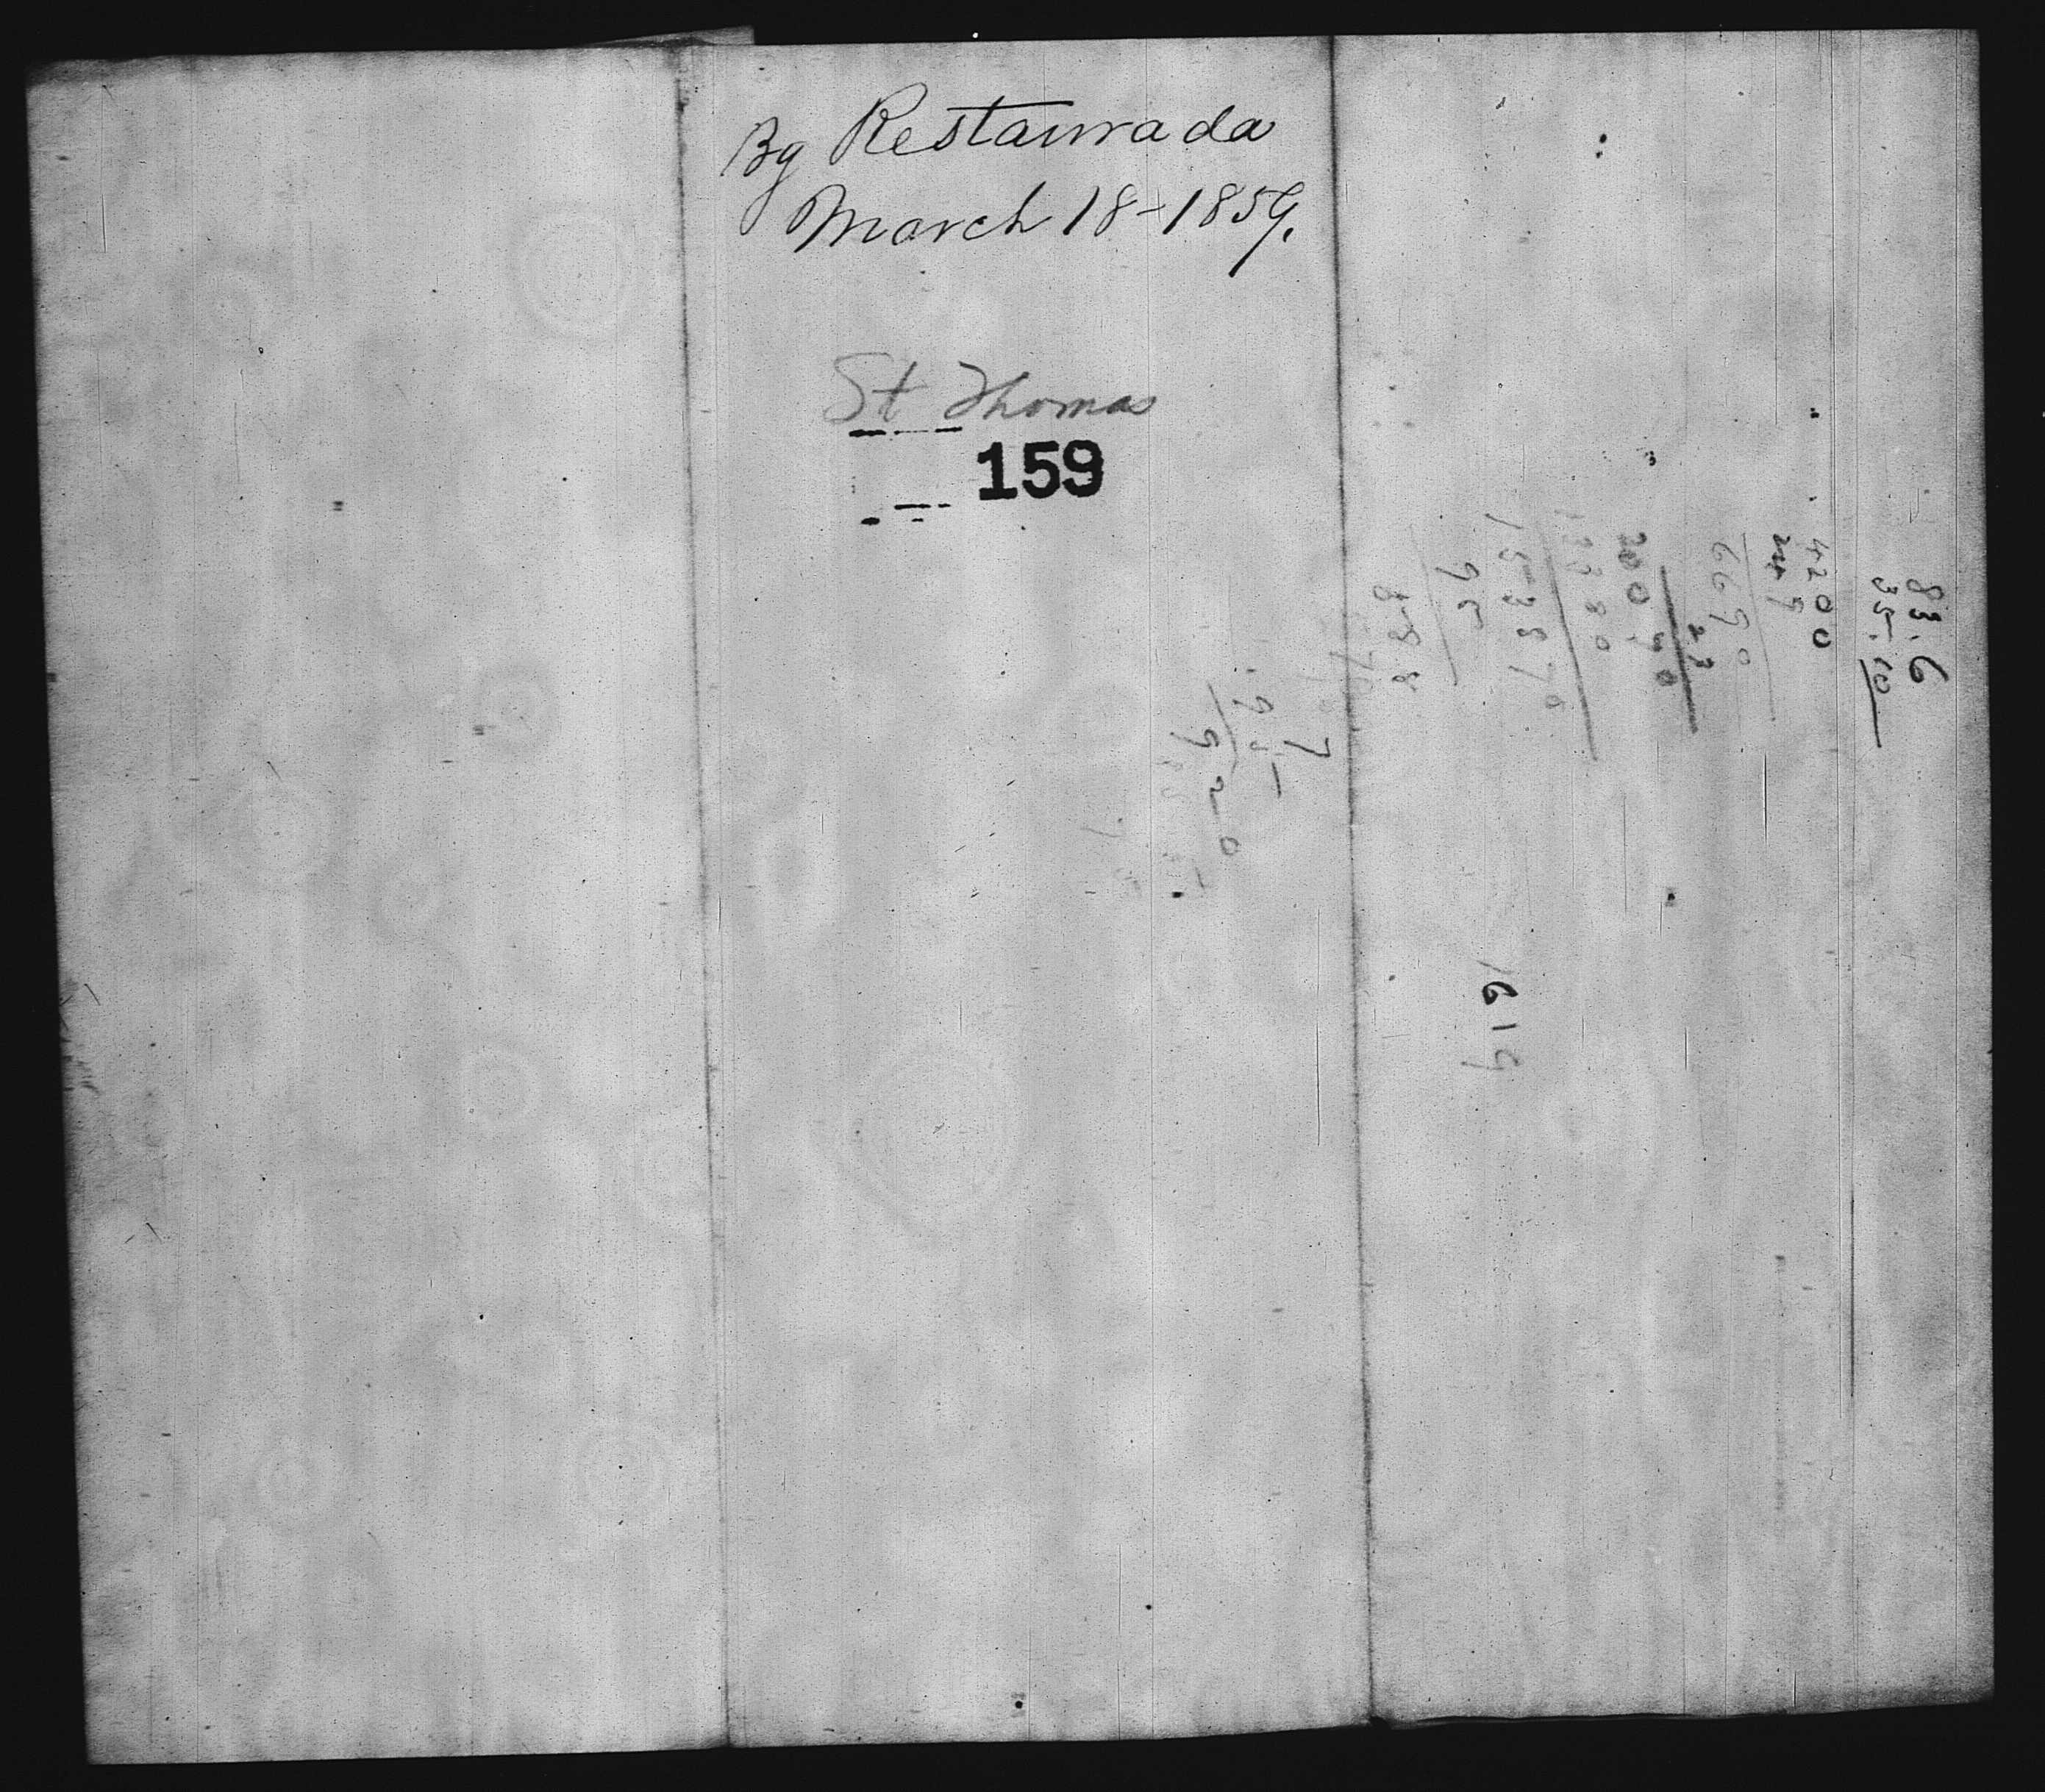 Bg Restaurada
March 18-1859.
St Thomas
159
83.6
35.10
4200
669 0
23
200 40
133 80
153870
95
888
7
95
1619